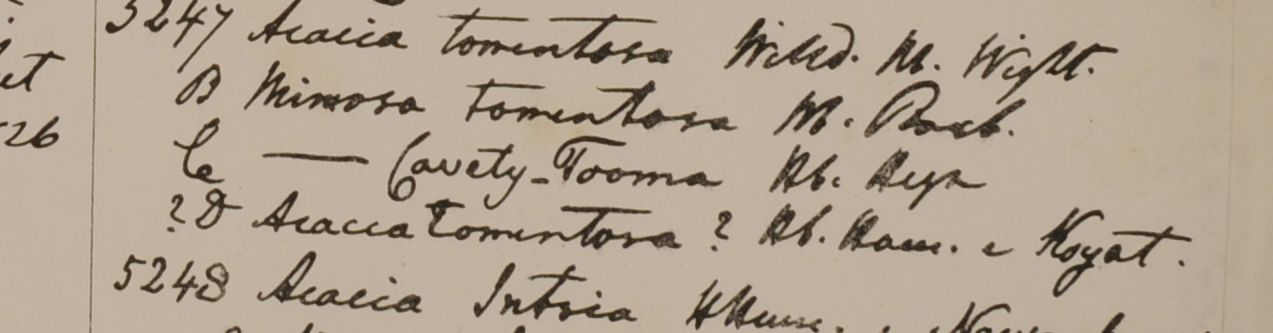 5247 Acacia tomentosa Willd. Hb. Wight.
B Mimosa tomentosa Hb. Roxb.
C — Cavety-Tooma Hb. Heyn
? D Acacia tomentosa ? Hb. Ham. e Koyat.
5248 Acacia Intsia HHam.
26